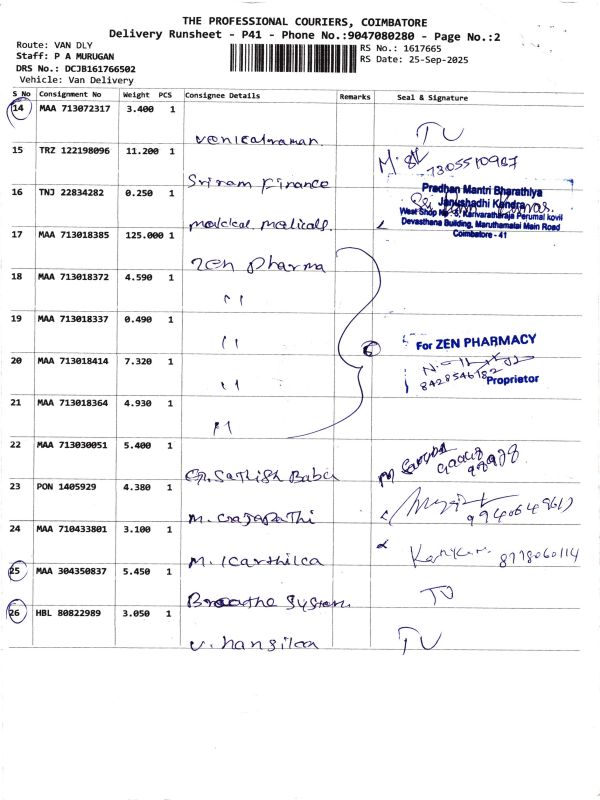 THE PROFESSIONAL COURIERS, COIMBATORE
Delivery Runsheet - P41 - Phone No.:9047080280 - Page No.:2
Route: VAN DLY
Staff: P A MURUGAN
DRS No.: DCJB161766502
Vehicle: Van Delivery
RS No.: 1617665
RS Date: 25-Sep-2025
S No Consignment No Weight PCS Consignee Details Remarks Seal & Signature
14 MAA 713072317 3.400 1
Venkatraman TU
15 TRZ 122198096 11.200 1
Sriram Finance 7305510987
16 TNJ 22834282 0.250 1
medical
Pradhan Mantri Bharathiya
Janushadhi Kendra
West Shop No : 3, Karivaratharaja Perumal kovil
Devasthana Building, Maruthamalai Main Road
Coimbatore - 41
17 MAA 713018385 125.000 1
Zen Pharma
18 MAA 713018372 4.590 1
"
19 MAA 713018337 0.490 1
"
20 MAA 713018414 7.320 1
"
For ZEN PHARMACY
8428546782
Proprietor
21 MAA 713018364 4.930 1
"
22 MAA 713030051 5.400 1
Sathish Babu
23 PON 1405929 4.380 1
M.
24 MAA 710433801 3.100 1
M. Karthika 8778060114
25 MAA 304350837 5.450 1
Breathe System TU
26 HBL 80822989 3.050 1
V. TU